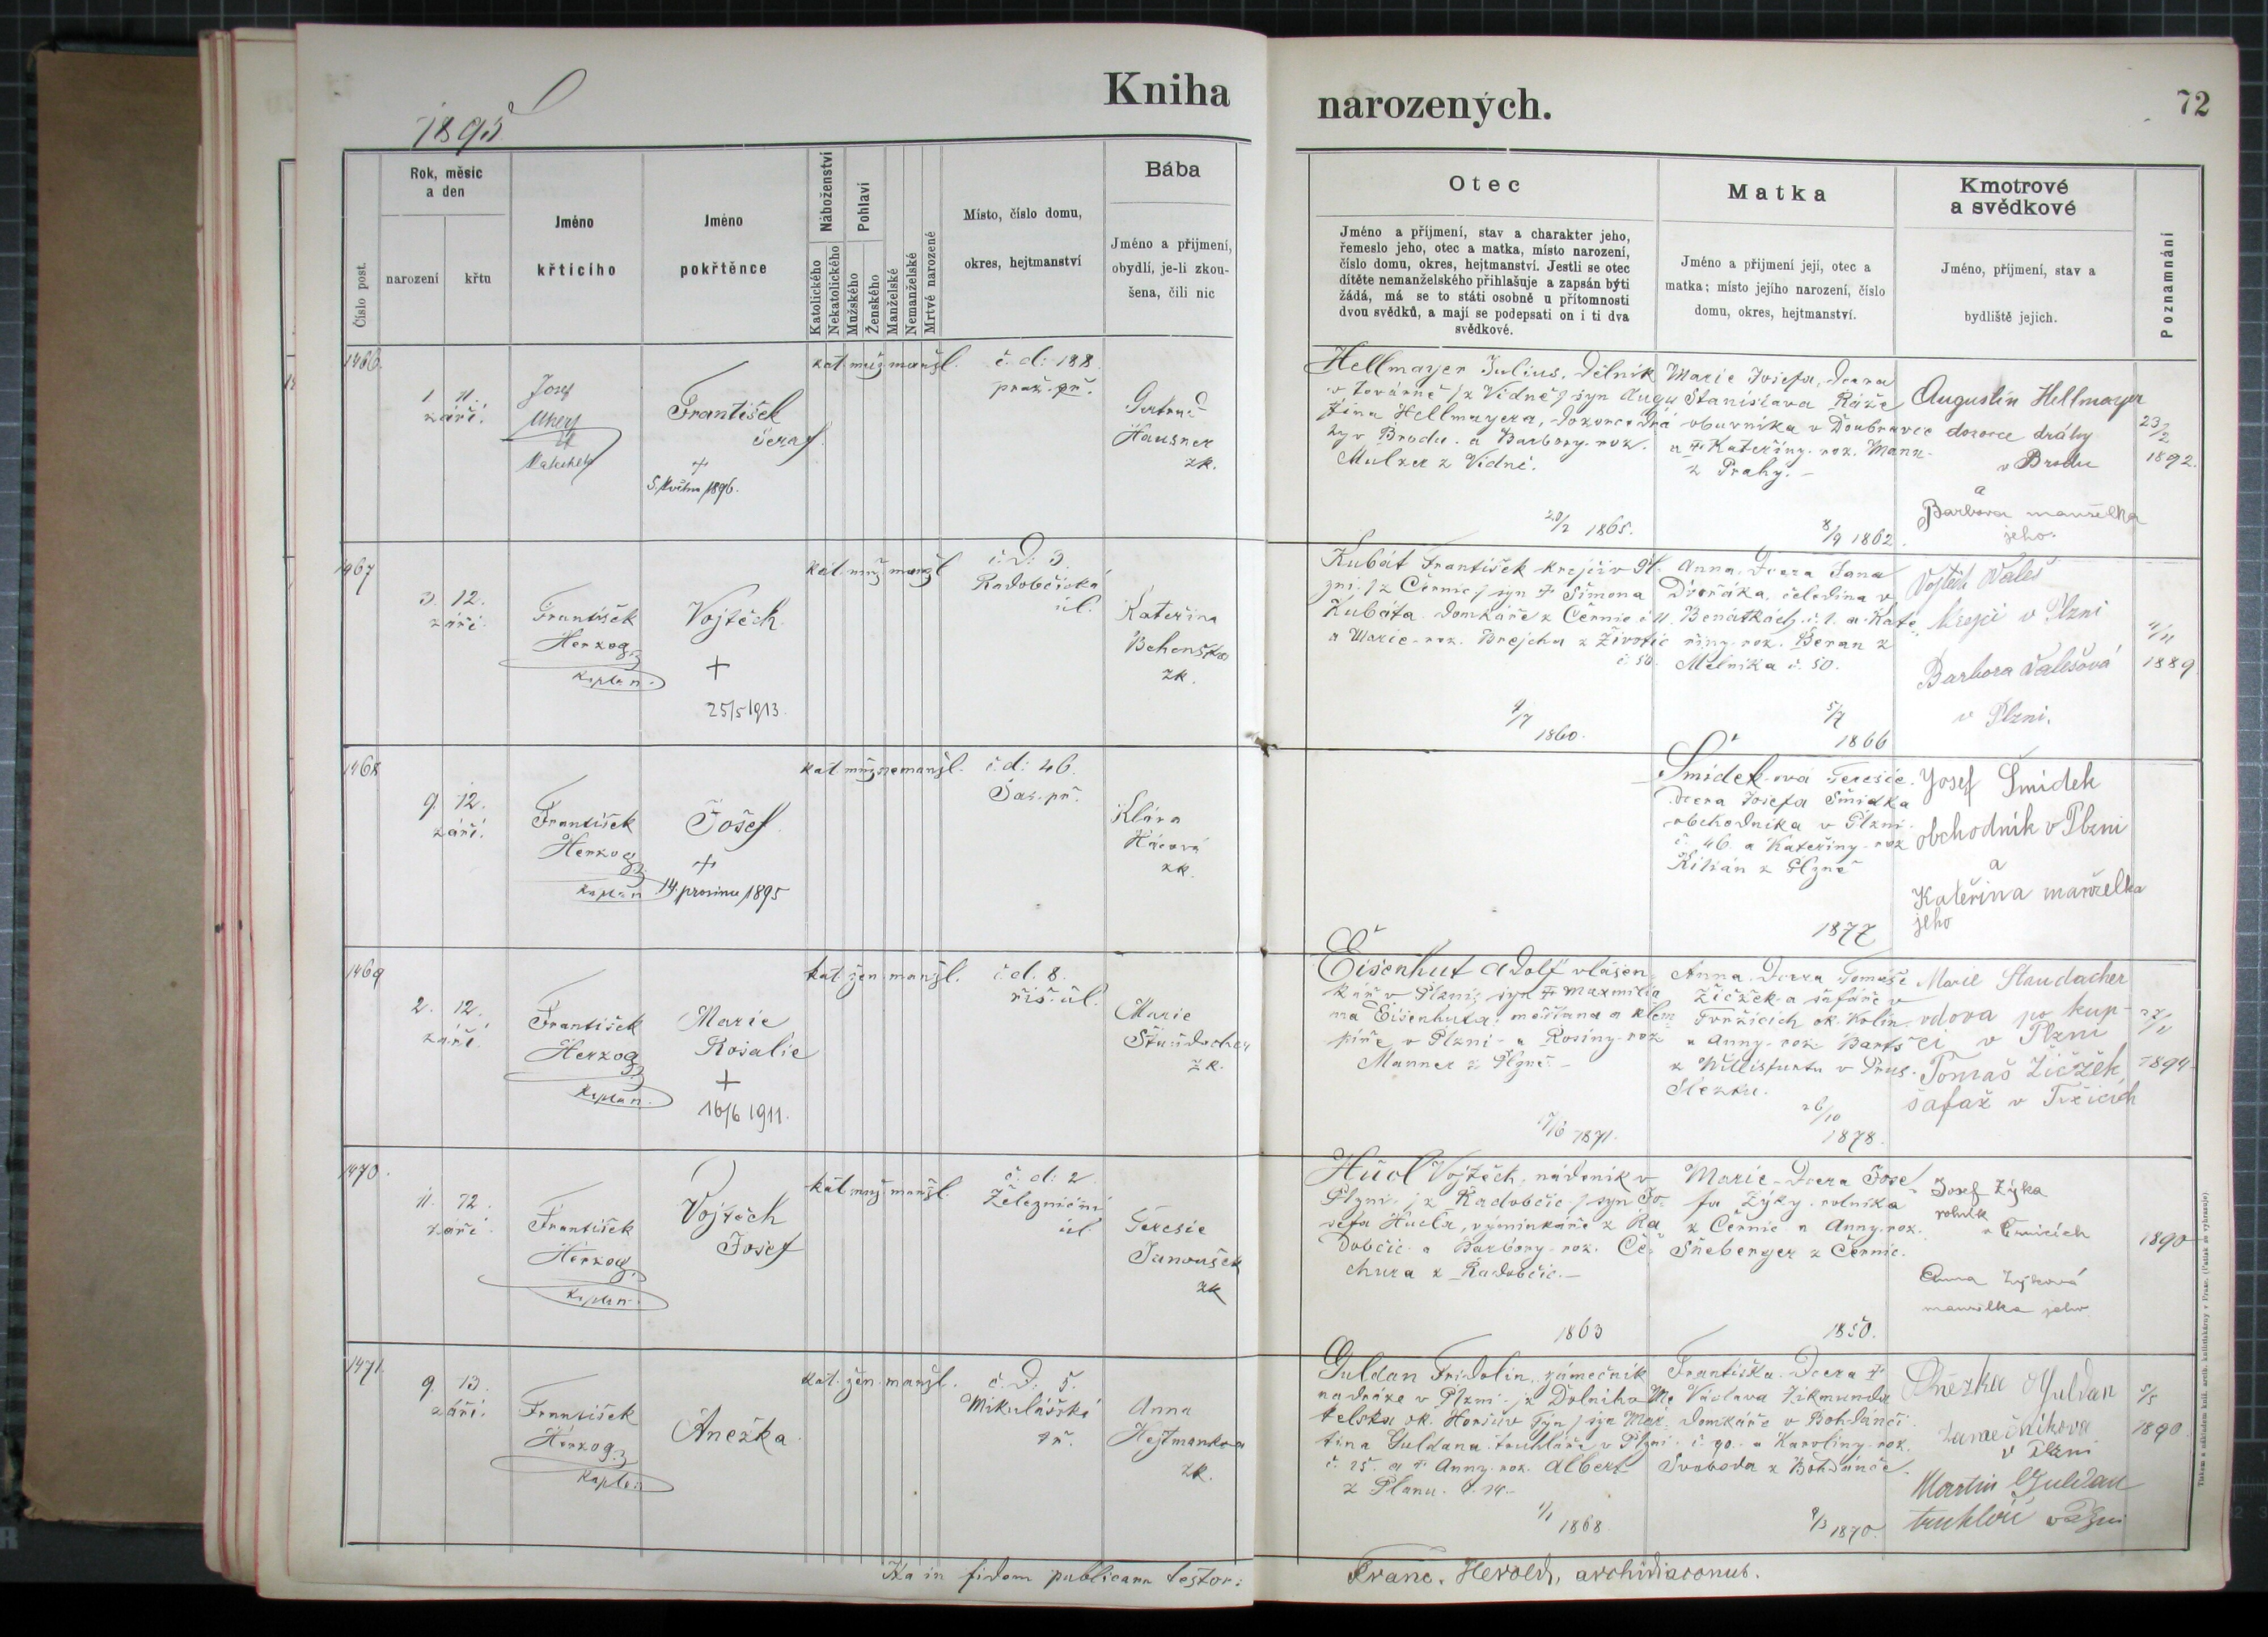 Kniha narozených.
72
1895
Číslo post.
Rok, měsíc
a den
narození
křtu
Jméno
křtícího
Jméno
pokřtěnce
Náboženství
Katolického
Nekatolického
Pohlaví
Mužského
Ženského
Manželské
Nemanželské
Mrtvé narozené
Místo, číslo domu,
okres, hejtmanství
Bába
Jméno a přijmení,
obydlí, je-li zkou-
šena, čili nic
Otec
Jméno a příjmení, stav a charakter jeho,
řemeslo jeho, otec a matka, místo narození,
číslo domu, okres, hejtmanství. Jestli se otec
dítěte nemanželského přihlašuje a zapsán býti
žádá, má se to státi osobně u přítomnosti
dvou svědků, a mají se podepsati on i ti dva
svědkové.
Matka
Jméno a přijmení její, otec a
matka; místo jejího narození, číslo
domu, okres, hejtmanství.
Kmotrové
a svědkové
Jméno, příjmení, stav a
bydliště jejich.
Poznamnání
1466.
1. 11.
září.
Josef
František
Seraf.
+
5. května 1896.
kat. muž. manžl.
č. d: 188
praž. př.
Hausner
zk.
Hellmayer Julius, dělník
v továrně /z Vídně/ syn Augu
stina Hellmayera, dozorce drá
hy v Brodu a Barbory roz.
Mulzer z Vídně.
20/2 1865.
Marie Josefa, dcera
Stanislava Ráže
obuvníka v Doubravce
a + Kateřiny roz. Mann
z Prahy. -
8/9 1862.
Augustin Hellmayer
dozorce dráhy
v Brodu
a
Barbora manželka
jeho.
23/2
1892.
1467
3. 12.
září.
František
Herzog
kaplan.
Vojtěch.
+
25/5 1913.
kat. muž. manžl
č. D: 3.
Radobčická
úl.
Kateřina
Behenská
zk.
Kubát František krejčí v Pl.
zni, /z Černic/ syn + Šimona
Kubáta domkáře z Černic č 11.
a Marie roz. Brejcha z Životic
č. 50.
4/7
1860.
Anna, dcera Jana
Dvořáka, čeledína v
Benátkách č. 1. a Kate
řiny roz. Beran z
Mělníka č. 50.
5/7
1866
Vojtěch Valeš
krejčí v Plzni
Barbora Valešová
v Plzni.
4/11
1889
1468
9. 12.
září.
František
Herzog
kaplan
Josef.
+
14. prosince 1895
kat. muž. nemanžl.
č. d: 46.
Sas. př.
Klára
Hácová
zk.
Šmídek-ová Teresie.
dcera Josefa Šmídka
obchodníka v Plzni
č. 46. a Kateřiny roz
Kilián z Plzně
1877
Josef Šmidek
obchodník v Plzni
a
Kateřina manželka
jeho
1469
2. 12.
září.
František
Herzog
kaplan.
Marie
Rosalie
+
16/6 1911.
kat. žen. manžl.
č. d. 8.
říš. úl.
Marie
zk.
Eisenhut Adolf vlásen
kář v Plzni, syn + Maxmilia
na Eisenhuta, měšťana a klem
píře v Plzni a Rosiny roz
Manner z Plzně. -
17/6 1871.
Anna dcera Tomáše
Žičžek-a šafáře v
Tvržicích ok. Kolín
a Anny roz Bartš
z Willisfurtu v Prus.
Slezku.
26/10
1878.
Marie Staudacher
vdova po kup-
ci v Plzni
Tomaš Žičžek,
šafař v Tržicích
27/11
1894
1470.
11. 12.
září.
František
Herzog
kaplan.
Vojtěch
Josef
kat. muž. manžl.
č. d: 2
Železniční
úl.
Teresie
Janoušek
zk
Hucl Vojtěch, nádeník v
Plzni /z Radobčic/ syn Jo
sefa Hucla, výminkáře z Ra
dobčic a Barbory roz. Če
chura z Radobčic. -
1863
Marie dcera Jose
fa Zýky rolníka
z Černic a Anny roz.
Šneberger z Černic.
1850.
Josef Zýka
rolník
v Černicích
Anna Zýková
manželka jeho
1890
1471.
9. 13.
září.
František
Herzog
kaplan
Anežka.
kat. žen. manžl.
č. D: 5.
Mikulášská
tř.
Anna
Hejtmanková
zk.
Guldan Fridolin, zámečník
na dráze v Plzni /z Dolního Me
telska ok. Horšův Týn/ syn Mar
tina Guldana truhláře v Plzni
č. 25. a + Anny roz. Albert
z Planu. č. 14. -
1/1 1868
Františka dcera +
Václava Zikmunda
domkáře v Bohdanči
č. 90. a Karoliny roz.
Svoboda z Bohdanče.
9/3 1870.
Anežka Guldan
zamečníkova
v Plzni
Martin Guldan
truhlář v Plzni
5/5
1890.
Ita in fidem publicam testor: Franc. Herold, archidiaconus.